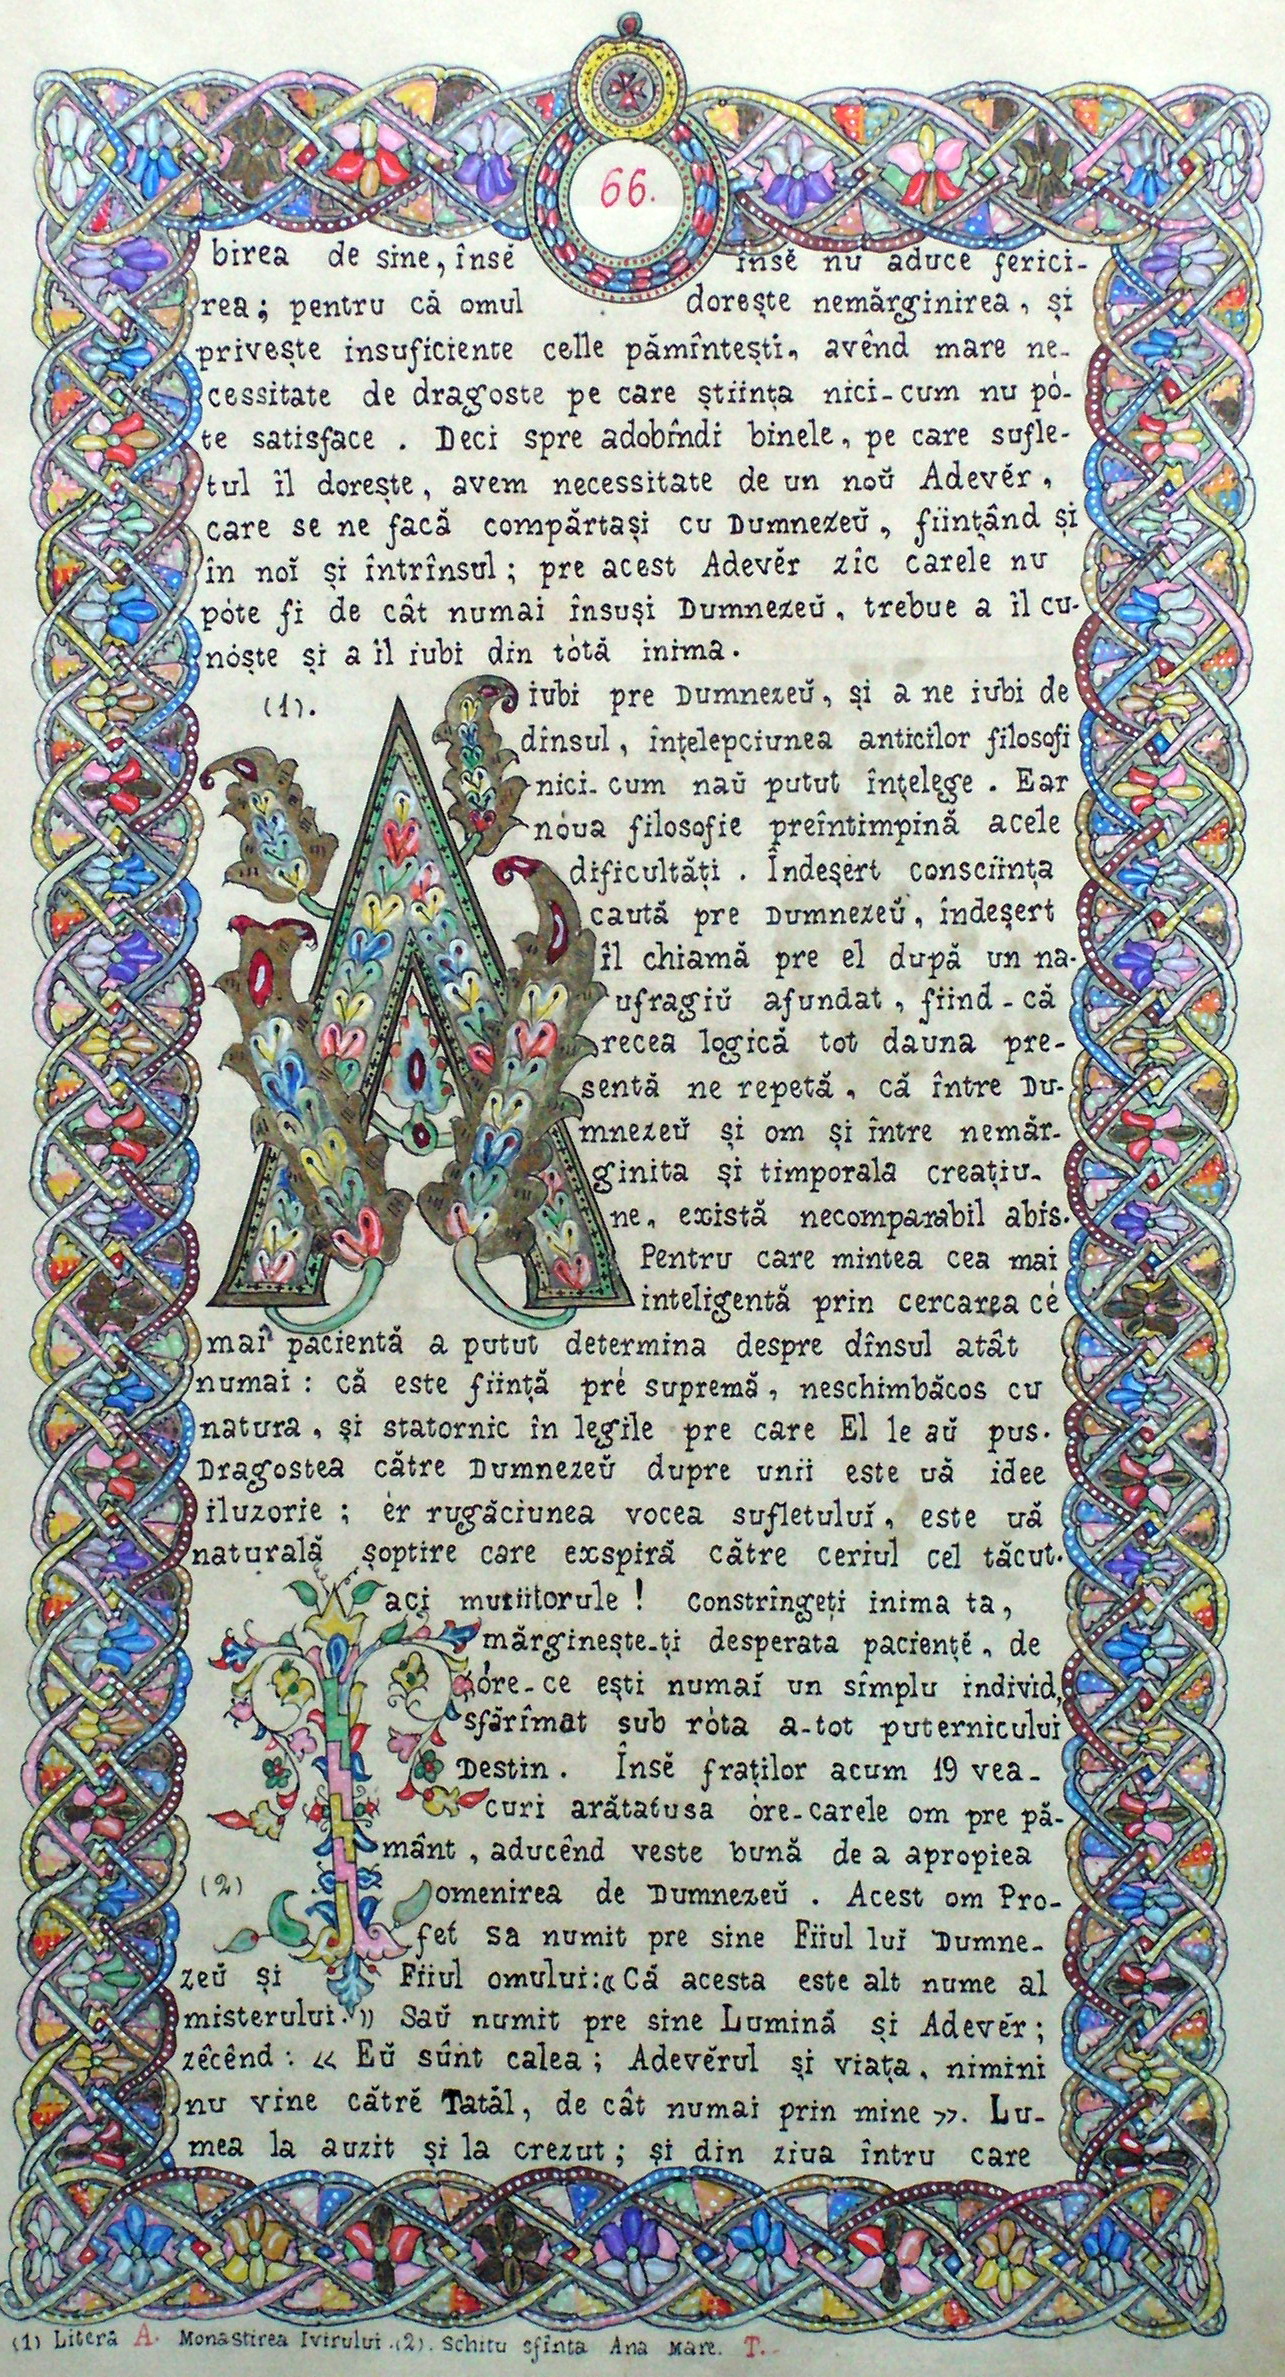 66.
birea de sine, însĕ însĕ nu aduce ferici-
rea; pentru că omul dorește nemărginirea, și
privește insuficiente celle pămîntești, avênd mare ne-
cessitate de dragoste pe care știința nici-cum nu pó-
te satisface. Deci spre adobîndi binele, pe care sufle-
tul îl dorește, avem necessitate de un noŭ Adevĕr,
care se ne facă compărtași cu Dumnezeŭ, ființând și
în noĭ și întrînsul; pre acest Adevĕr zic carele nu
póte fi de cât numai însuși Dumnezeŭ, trebue a îl cu-
nóște și a îl iubi din tótă inima.
(1). A iubi pre Dumnezeŭ, și a ne iubi de
dînsul, înțelepciunea anticilor filosofi
nici-cum naŭ putut înțelege. Ear
nóua filosofie preîntimpină acele
dificultăți. Îndeșért consciința
caută pre Dumnezeŭ, îndeșert
îl chiamă pre el după un na-
ufragiŭ afundat, fiind-că
recea logică tot dauna pre-
sentă ne repetă, că între Du-
mnezeŭ și om și între nemăr-
ginita și timporala creațiu-
ne, există necomparabil abis.
Pentru care mintea cea mai
inteligentă prin cercarea cé
mai pacientă a putut determina despre dînsul atât
numai: că este ființă pré supremă, neschimbăcos cu
natura, și statornic în legile pre care El le aŭ pus.
Dragostea către Dumnezeŭ dupre unii este uă idee
iluzorie; ér rugăciunea vocea sufletuluĭ, este uă
naturală șoptire care exspiră către ceriul cel tăcut.
Taci muritorule! Constrîngeți inima ta,
mărginește-ți desperata paciențé, de
óre-ce ești numaĭ un sîmplu individ,
sfărîmat sub róta a-tot puternicului
Destin. Însĕ fraților acum 19 vea-
curi arătatusa óre-carele om pre pă-
mânt, aducênd veste bună de a apropiea
(2) omenirea de Dumnezeŭ. Acest om Pro-
fet sa numit pre sine Fiiul luĭ Dumne-
zeŭ și Fiiul omului: «Că acesta este alt nume al
misterului.» Saŭ numit pre sine Lumină și Adevĕr;
zêcênd: « Eŭ sûnt calea; Adevĕrul și viața, nimini
nu vine cătrĕ Tatăl, de cât numai prin mine ». Lu-
mea la auzit și la crezut; și din ziua întru care
(1) Litera A. Monastirea Ivirului. (2). Schitu sfînta Ana Mare. T.